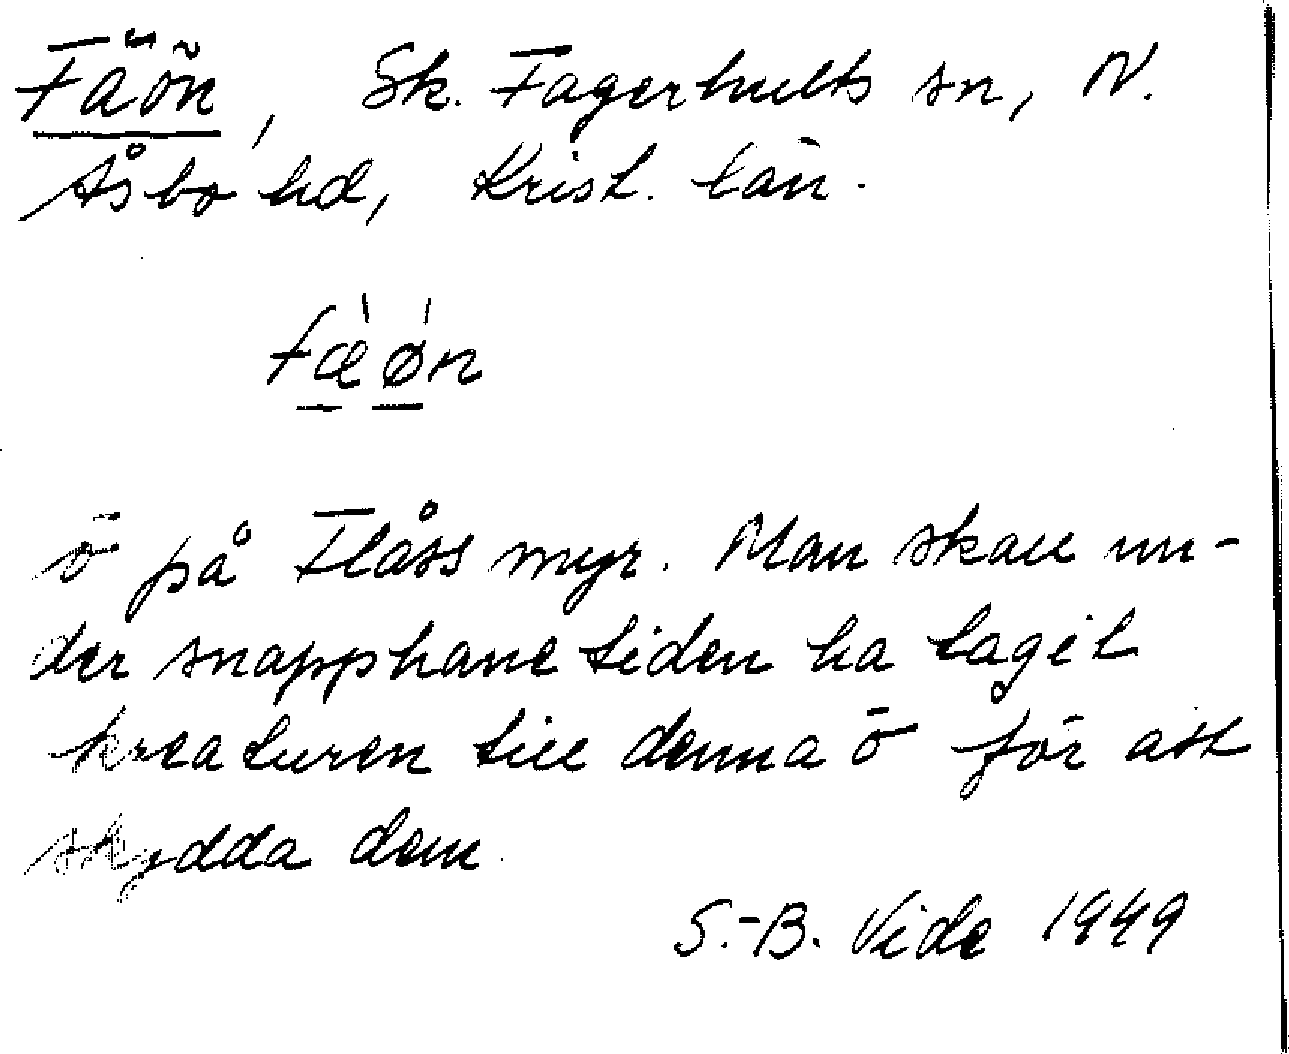 Fäön, Sk. Fagerhults sn, N.
Åsbo hd, Krist. län.
fæ̀ǿn
ö på Flåss myr. Man skall un-
der snapphanetiden ha tagit
kreaturen till denna ö för att
skydda dem.
S.-B. Vide 1949